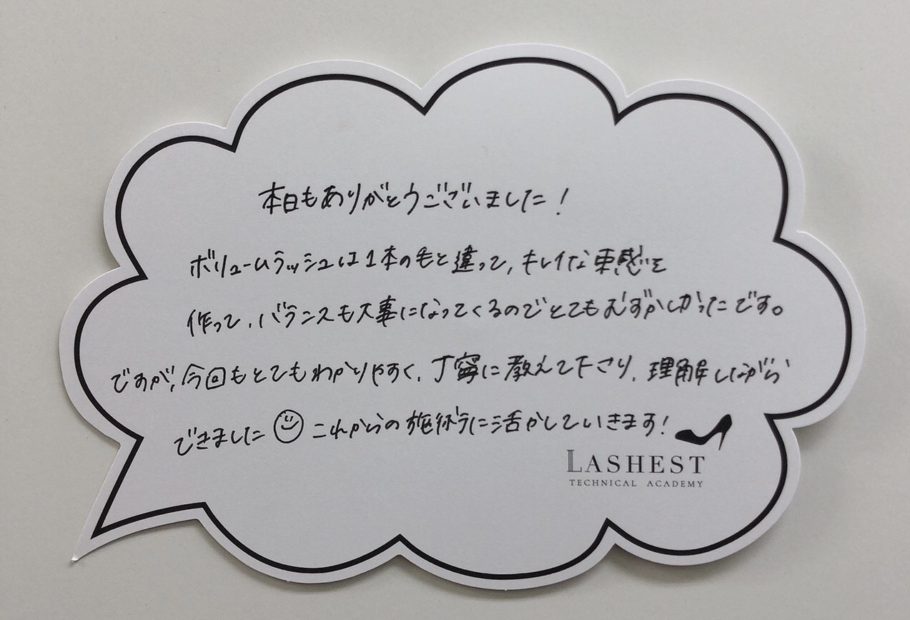 本日もありがとうございました!
ボリュームラッシュは1本の毛と違って、キレイな束感を
作って、バランスも大事になってくるのでとてもむずかしかったです。
ですが、今回もとてもわかりやすく、丁寧に教えて下さり、理解しながら
できました☺ これからの施術に活かしていきます!
LASHEST
TECHNICAL ACADEMY